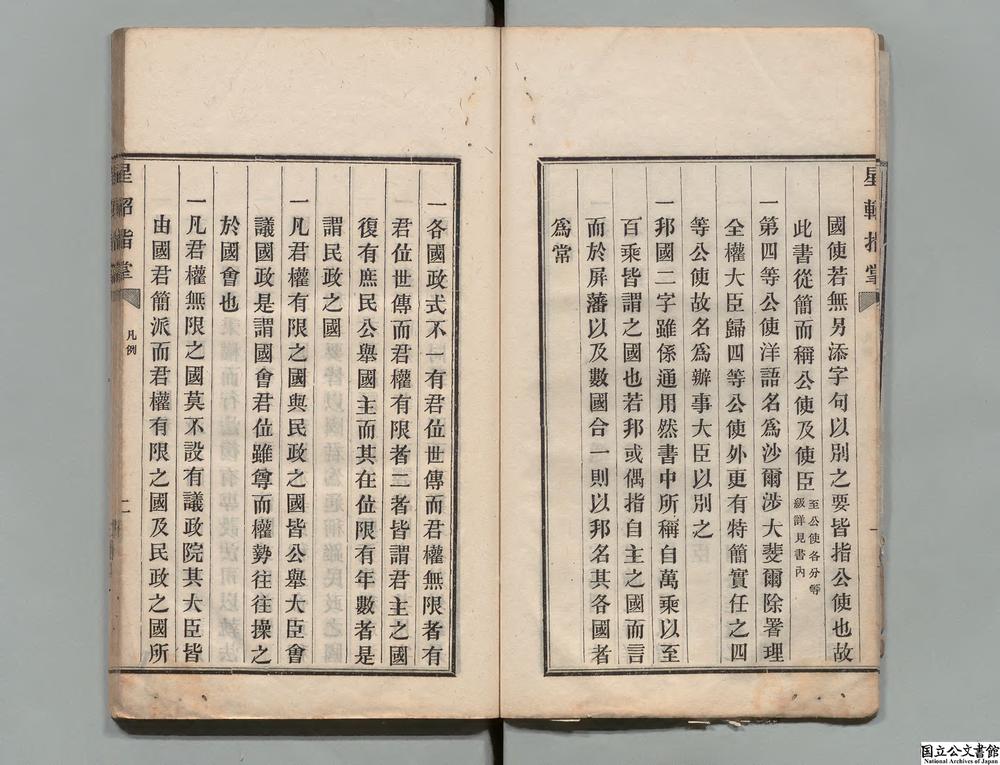 星軺指掌
國使若無另添字句以別之要皆指公使也故
此書從簡而稱公使及使臣至公使各分等級詳見書內
一第四等公使洋語名為沙爾涉大斐爾除署理
全權大臣歸四等公使外更有特簡實任之四
等公使故名為辦事大臣以別之
一邦國二字雖係通用然書中所稱自萬乘以至
百乘皆謂之國也若邦或偶指自主之國而言
而於屏藩以及數國合一則以邦名其各國者
為常
一各國政式不一有君位世傳而君權無限者有
君位世傳而君權有限者二者皆謂君主之國
復有庶民公舉國主而其在位限有年數者是
謂民政之國
一凡君權有限之國與民政之國皆公舉大臣會
議國政是謂國會君位雖尊而權勢往往操之
於國會也
一凡君權無限之國莫不設有議政院其大臣皆
由國君簡派而君權有限之國及民政之國所
星軺指掌
凡例
二
国立公文書館
National Archives of Japan